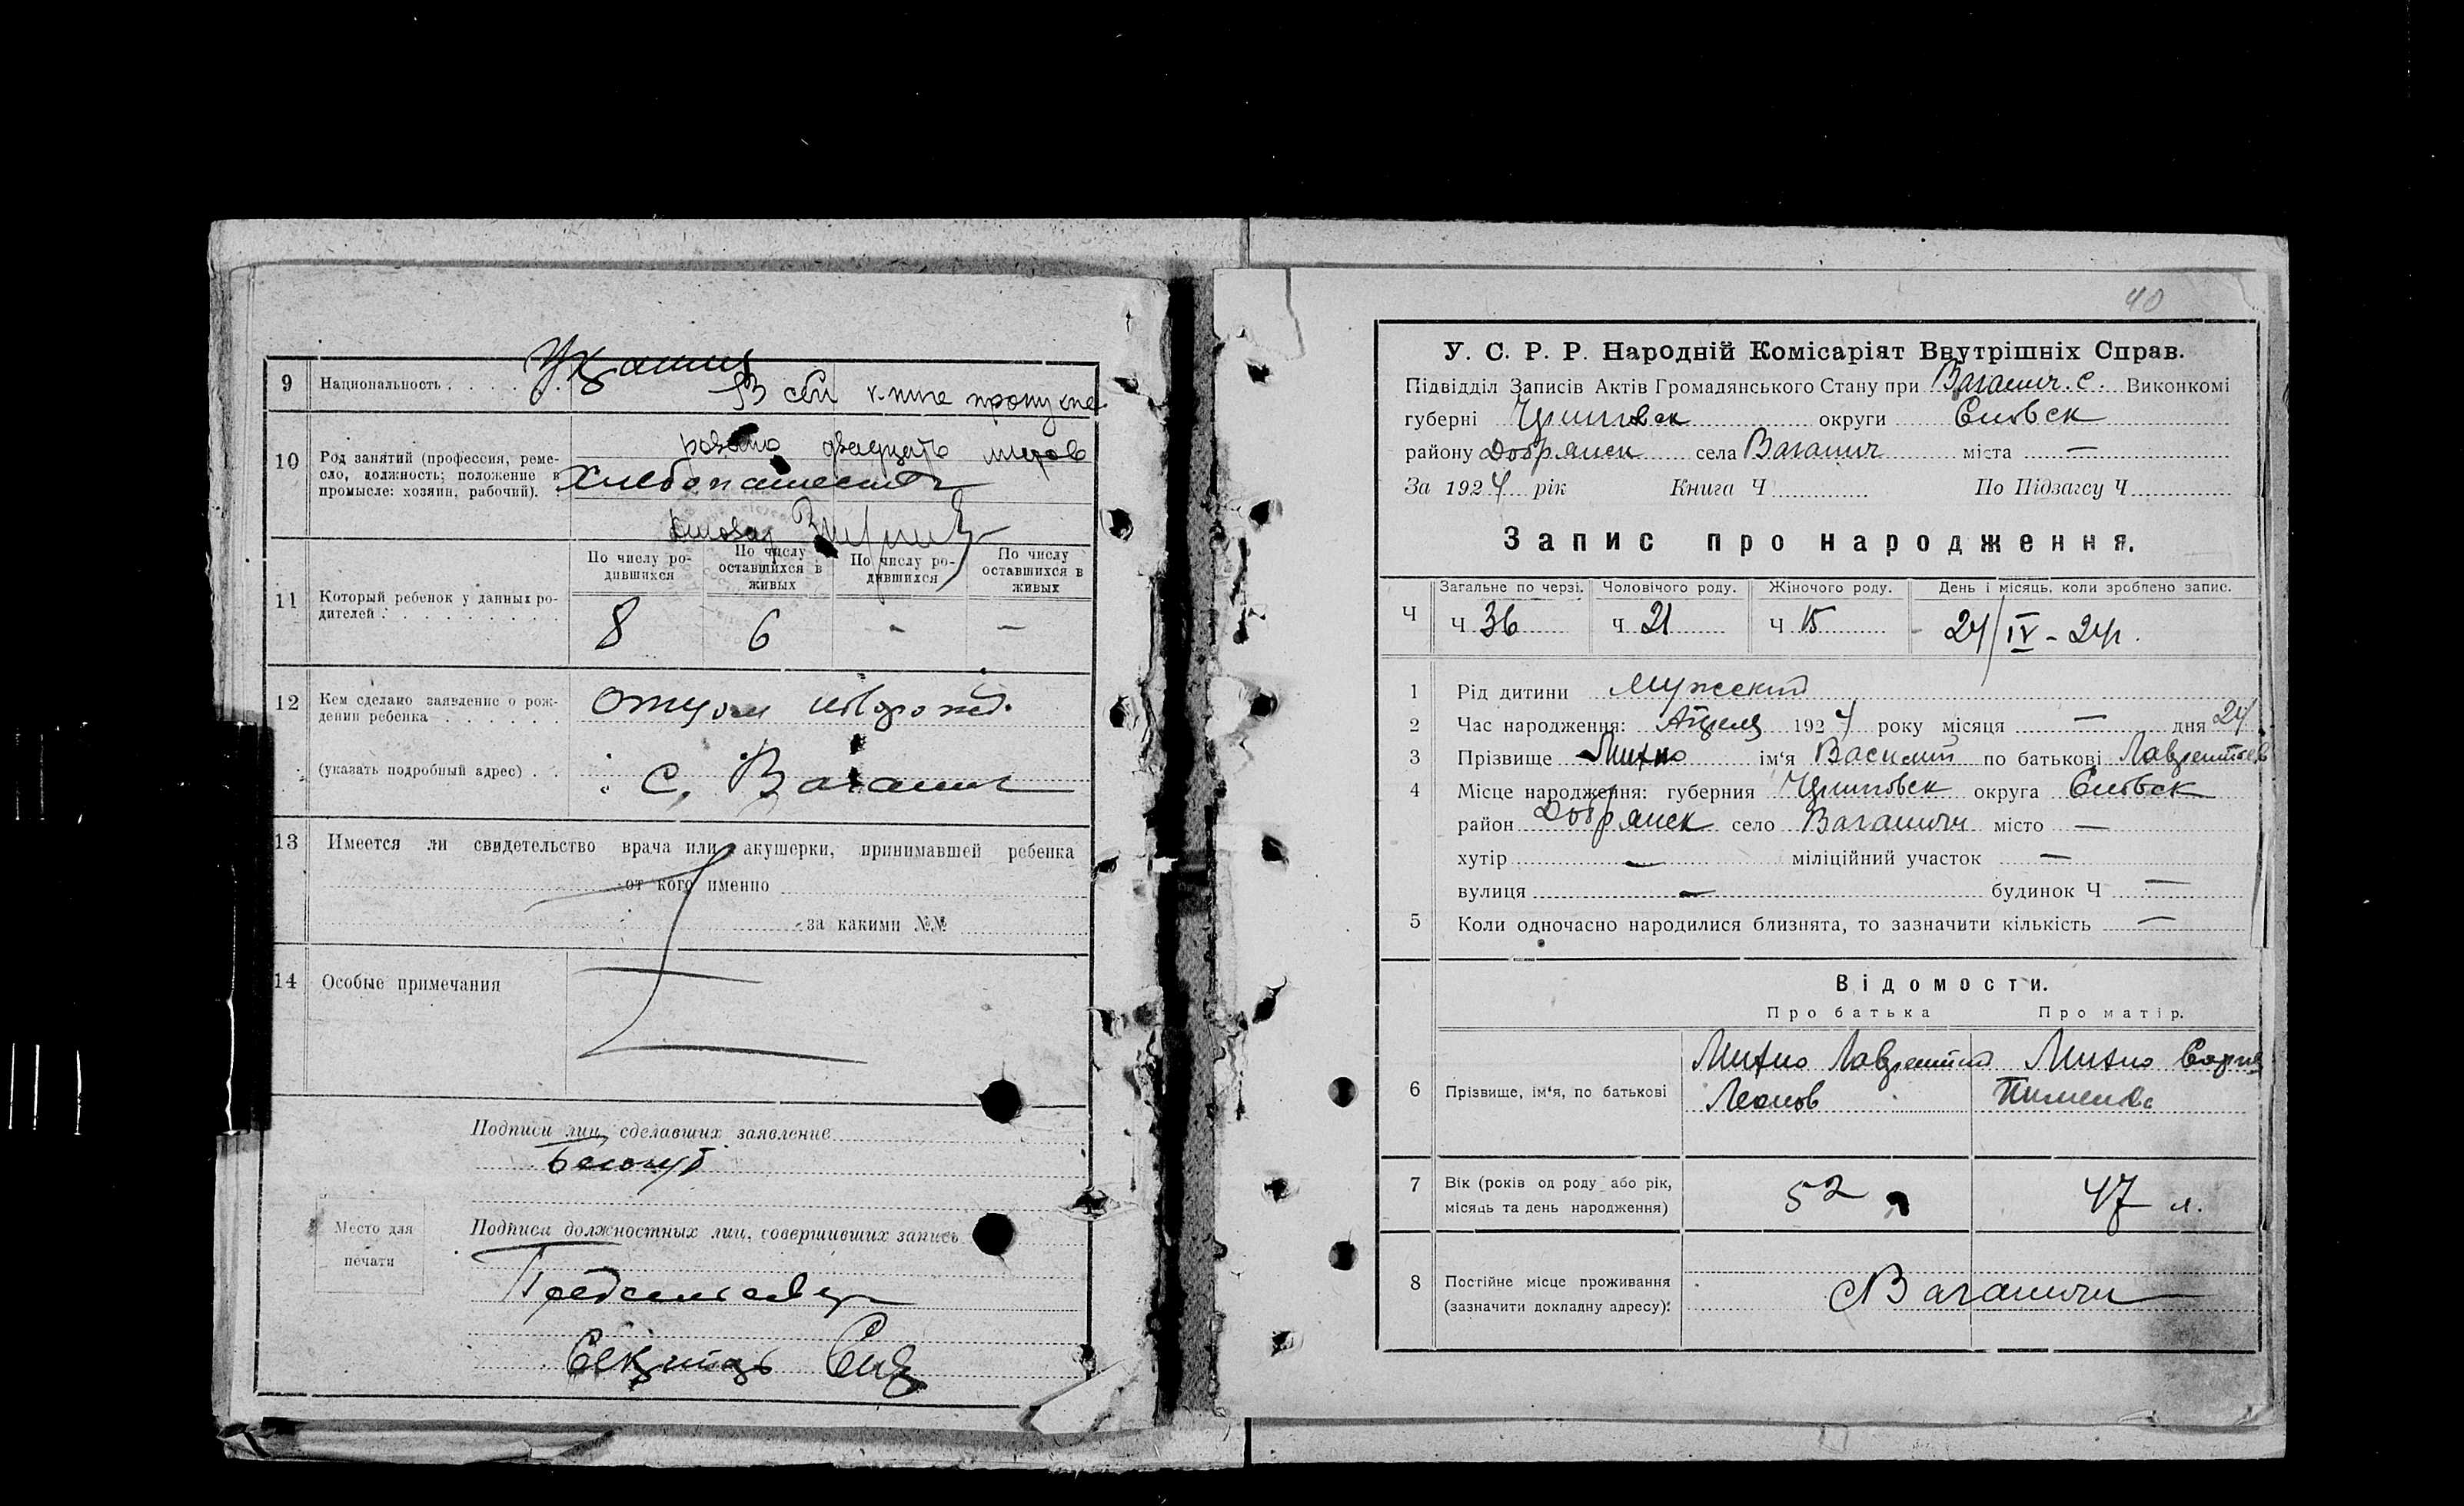 9 Национальность . . . . . . Украинц
В сей книге
двадцать листов
10 Род занятий (профессия, реме-
сло, должность; положение в
промысле: хозяин, рабочий). . Хлебопашество
11 Который ребенок у данных ро-
дителей . . . . . . . . . .
По числу ро-
дившихся
По числу
оставшихся в
живых
По числу ро-
дившихся
По числу
оставшихся в
живых
8 6 - —
12 Кем сделано заявление о рож-
дении ребенка . . . . . . Отцом
(указать подробный адрес) . . с. Ваганич
13 Имеется ли свидетельство врача или акушерки, принимавшей ребенка
от кого именно
за какими №№
14 Особые примечания
Подписи лиц, сделавших заявление
Место для
печати
Подписи должностных лиц, совершивших запись
Председатель
Секретарь
40
У. С. Р. Р. Народній Комісаріят Внутрішніх Справ.
Підвідділ Записів Актів Громадянського Стану при Ваганич. с. Виконкомі
губерні Чернговск округи Сновск
району Добрянск села Ваганич міста —
За 1924 рік Книга Ч По Підзагсу Ч
Запис про народження.
Загальне по черзі. Чоловічого роду. Жіночого роду. День і місяць, коли зроблено запис.
Ч Ч 36 Ч 21 Ч 15 24/IV - 24 р.
1 Рід дитини Мужский
2 Час народження: Апреля 1924 року місяця — дня 24
3 Прізвище Михно ім‘я Василий по батькові Лаврентьев
4 Місце народження: губерния Чернговск округа Сновск
район Добрянск село Ваганичи місто —
хутір — міліційний участок —
вулиця — будинок Ч —
5 Коли одночасно народилися близнята, то зазначити кількість —
Відомости.
Про батька Про матір.
6 Прізвище, ім‘я, по батькові
Михно Лаврентий Михно
Леонов Пименова
7 Вік (років од роду або рік,
місяць та день народження) 52 47 л.
8 Постійне місце проживання
(зазначити докладну адресу): с Ваганичи